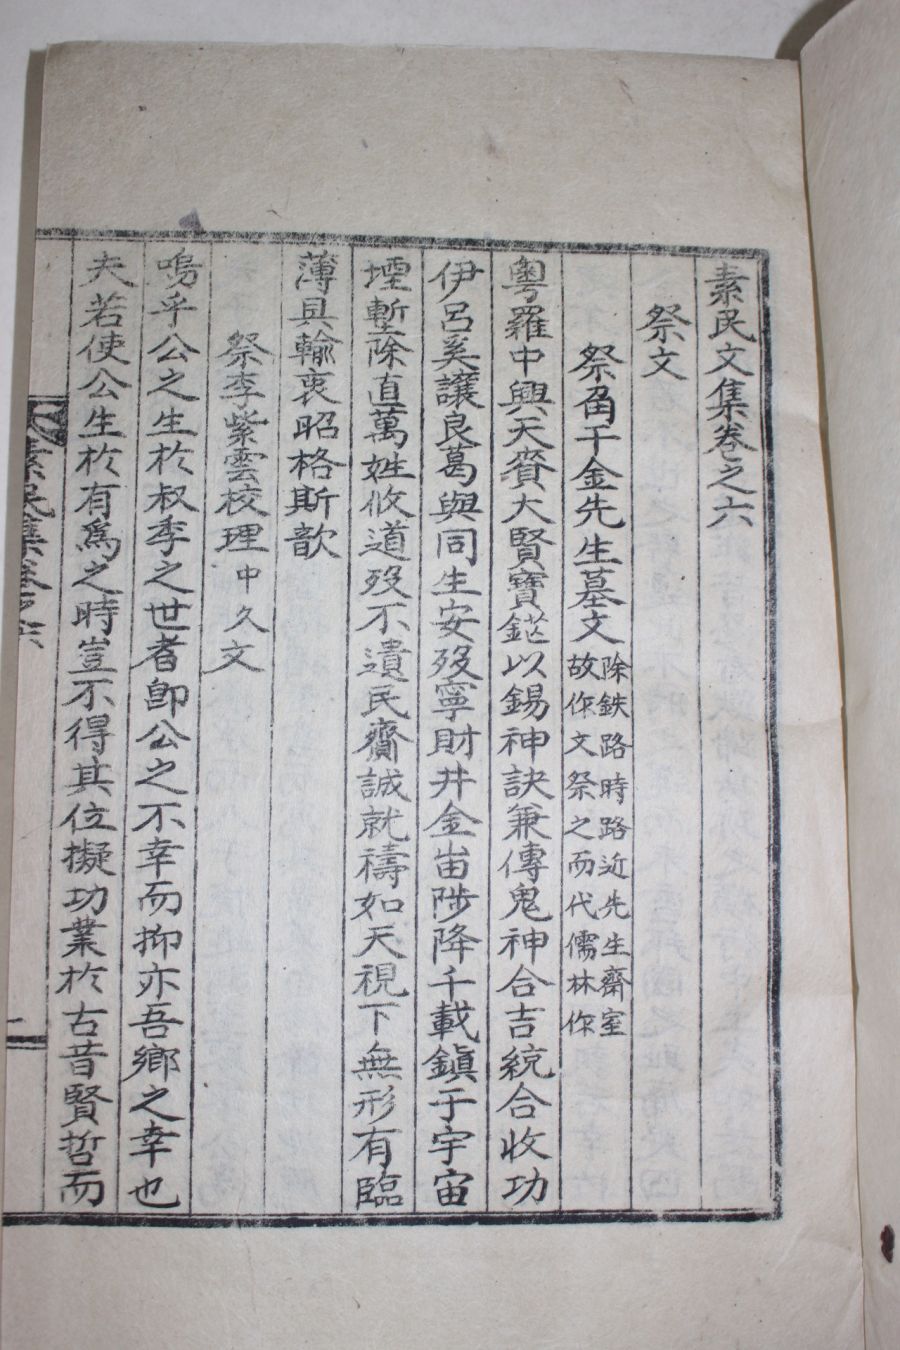 素民文集卷之六
祭文
祭角干金先生墓文
除鉄路時路近先生齋室
故作文祭之而代儒林作
粤羅中興天賚大賢寶鎰以錫神訣兼傳鬼神合吉統合收功
伊呂奚讓良葛與同生安殁寧財井金峀陟降千載鎭于宇宙
堙塹除直萬姓攸道殁不遺民齎誠就禱如天視下無形有臨
薄具輸衷昭格斯歆
祭李紫雲校理中久文
嗚乎公之生於叔季之世者卽公之不幸而抑亦吾鄕之幸也
夫若使公生於有爲之時豈不得其位擬功業於古昔賢哲而
素民集卷之六
一